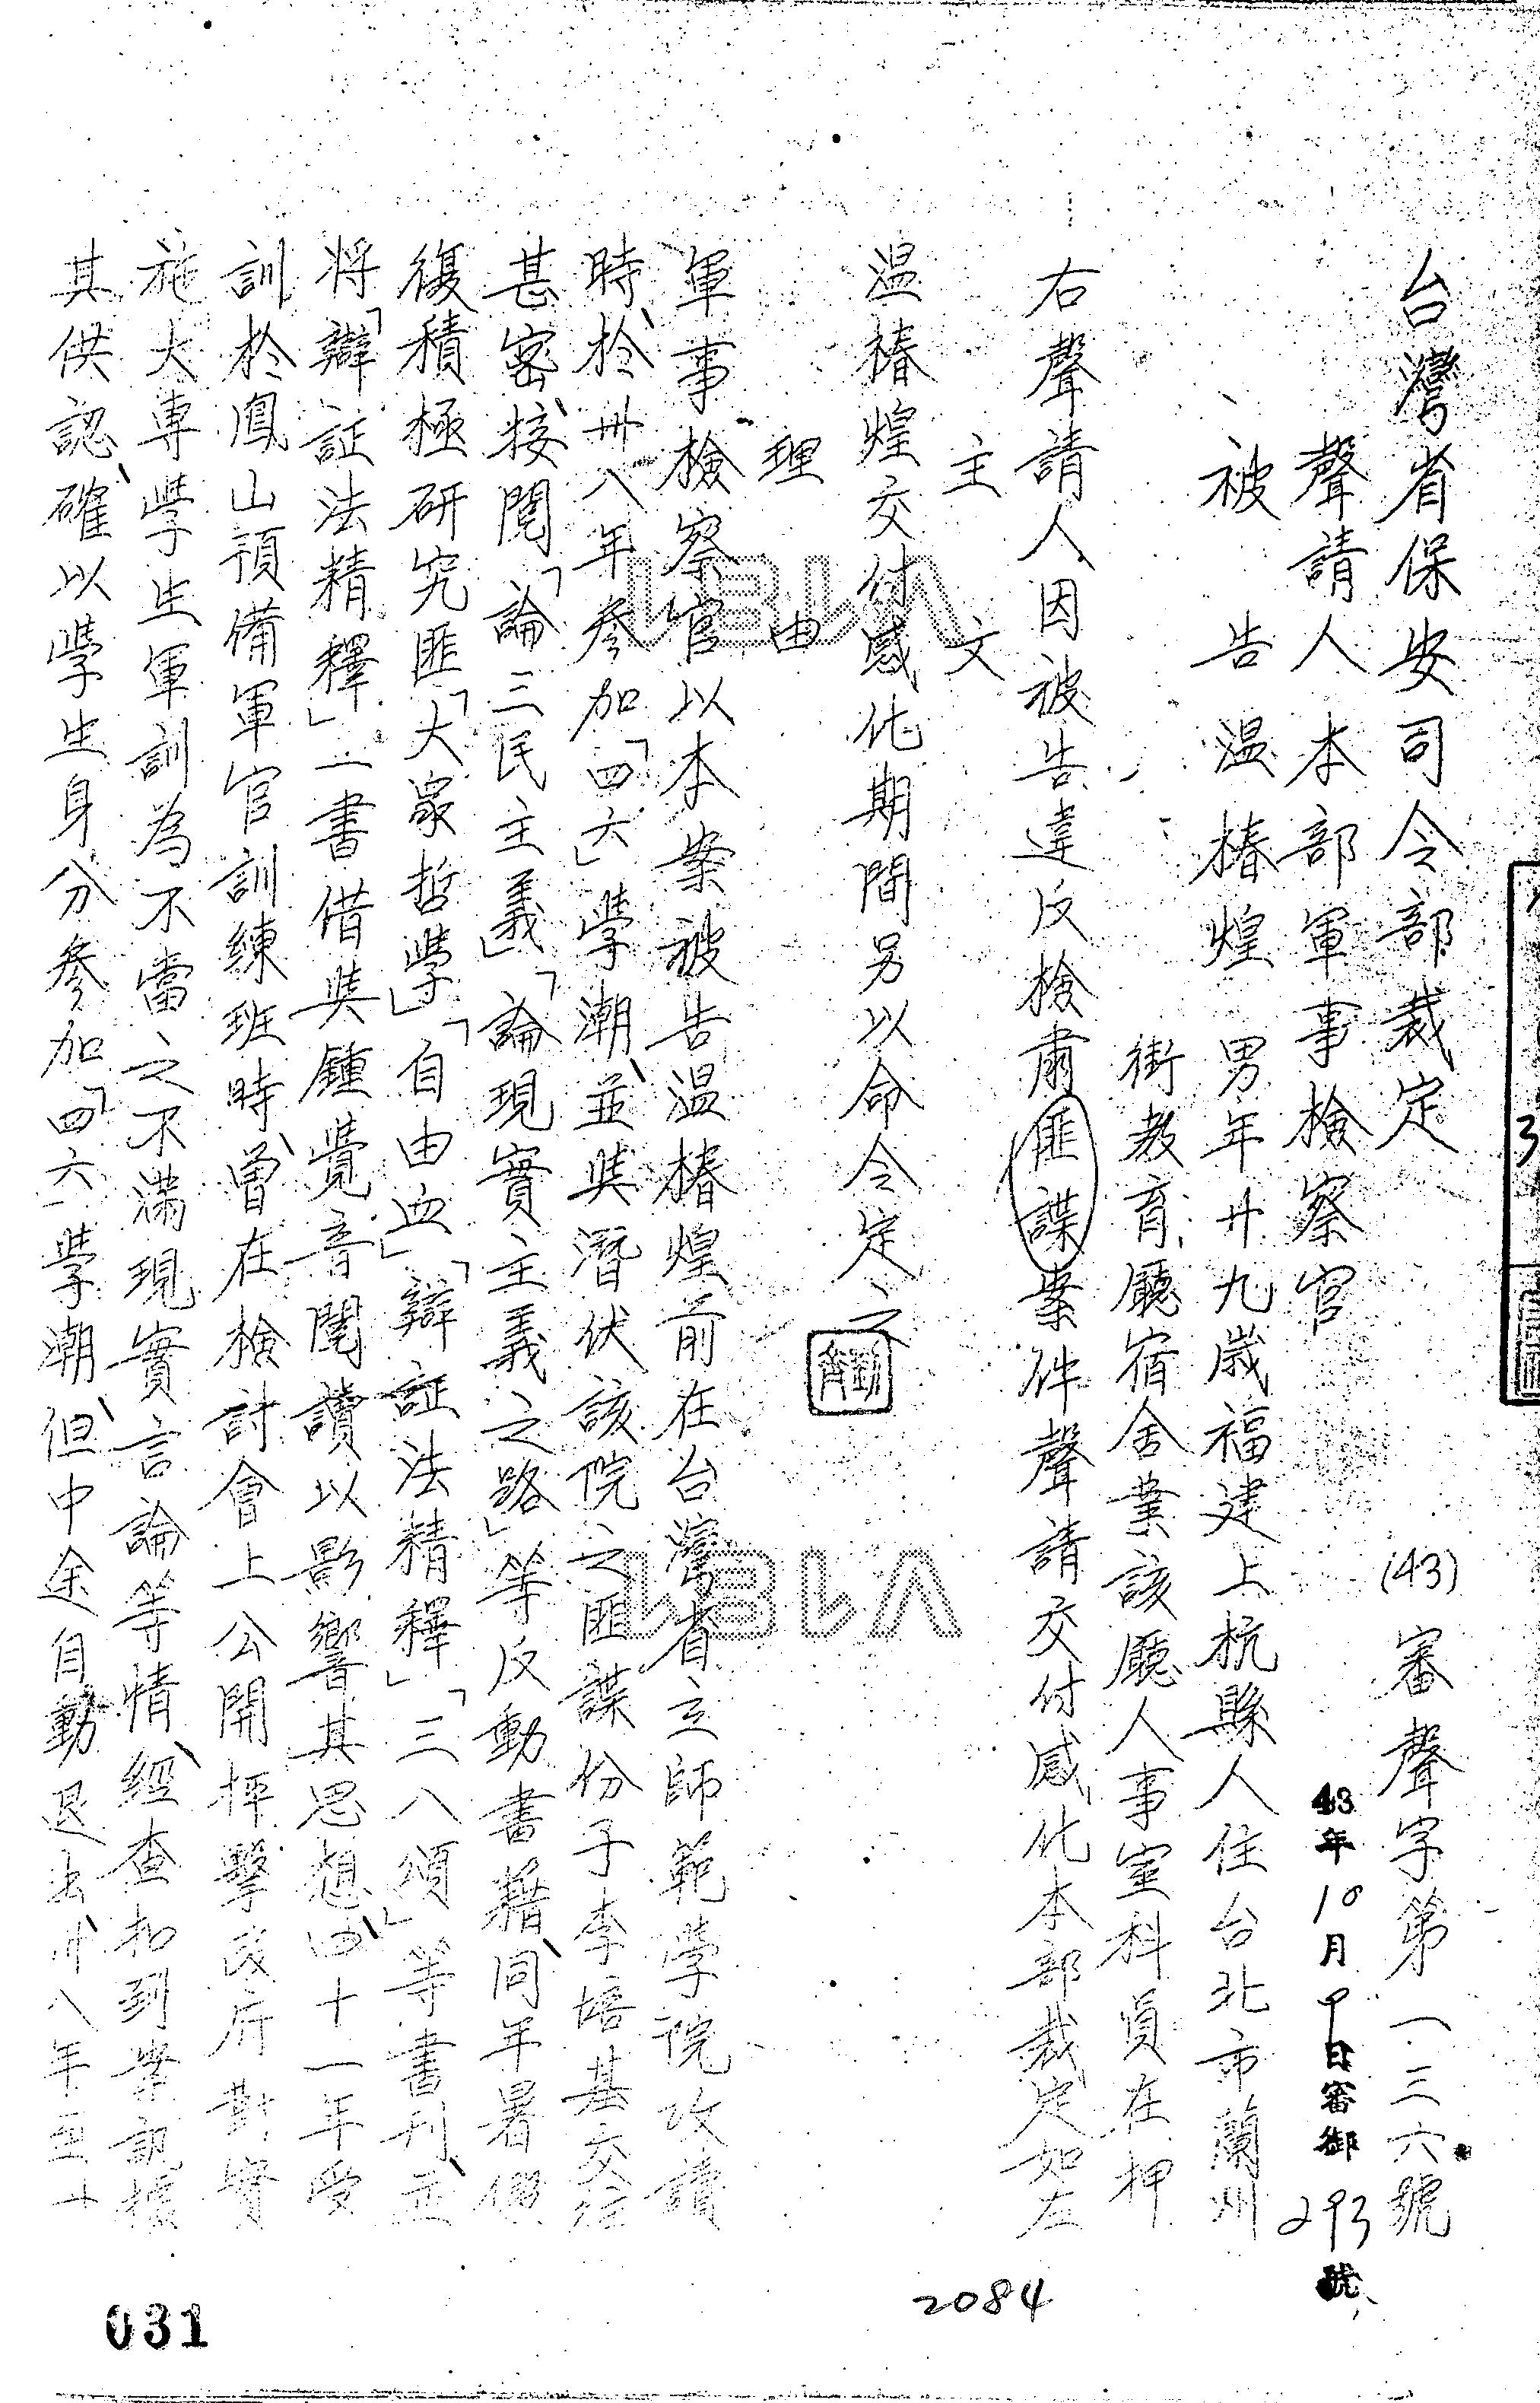 台灣省保安司令部裁定
(43)審聲字第一三六號
43年10月9日審御293號
聲請人本部軍事檢察官
被告溫椿煌 男年廿九歲福建上杭縣人住台北市蘭州
街教育廳宿舍業該廳人事室科員在押
右聲請人因被告違反檢肅匪諜案件聲請交付感化本部裁定如左
主文
溫椿煌交付感化期間另以命令定之
理由
軍事檢察官以本案被告溫椿煌前在台灣省立師範學院攻讀
時、於卅八年參加「四六」學潮、並與潛伏該院之匪諜份子李培基交往
甚密、接閱「論三民主義」「論現實主義之路」等反動書籍、同年暑假
復積極研究匪「大眾哲學」「自由血」「辯証法精釋」「三八頌」等書刊、並
將「辯証法精釋」一書借與鍾覺音閱讀以影響其思想、四十一年受
訓於鳳山預備軍官訓練班時、曾在檢討會上公開抨擊政府對實
施大專學生軍訓為不當之不滿現實言論等情、經查扣到案訊據
其供認、確以學生身分參加「四六」學潮、但中途自動退去、卅八年至十
2084
031
VIBIA
VIBIA